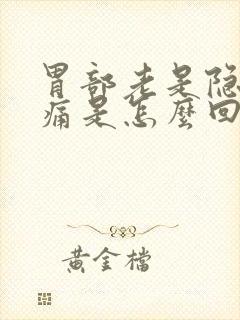 胃部老是隐
痛是怎麼回
黄金檔